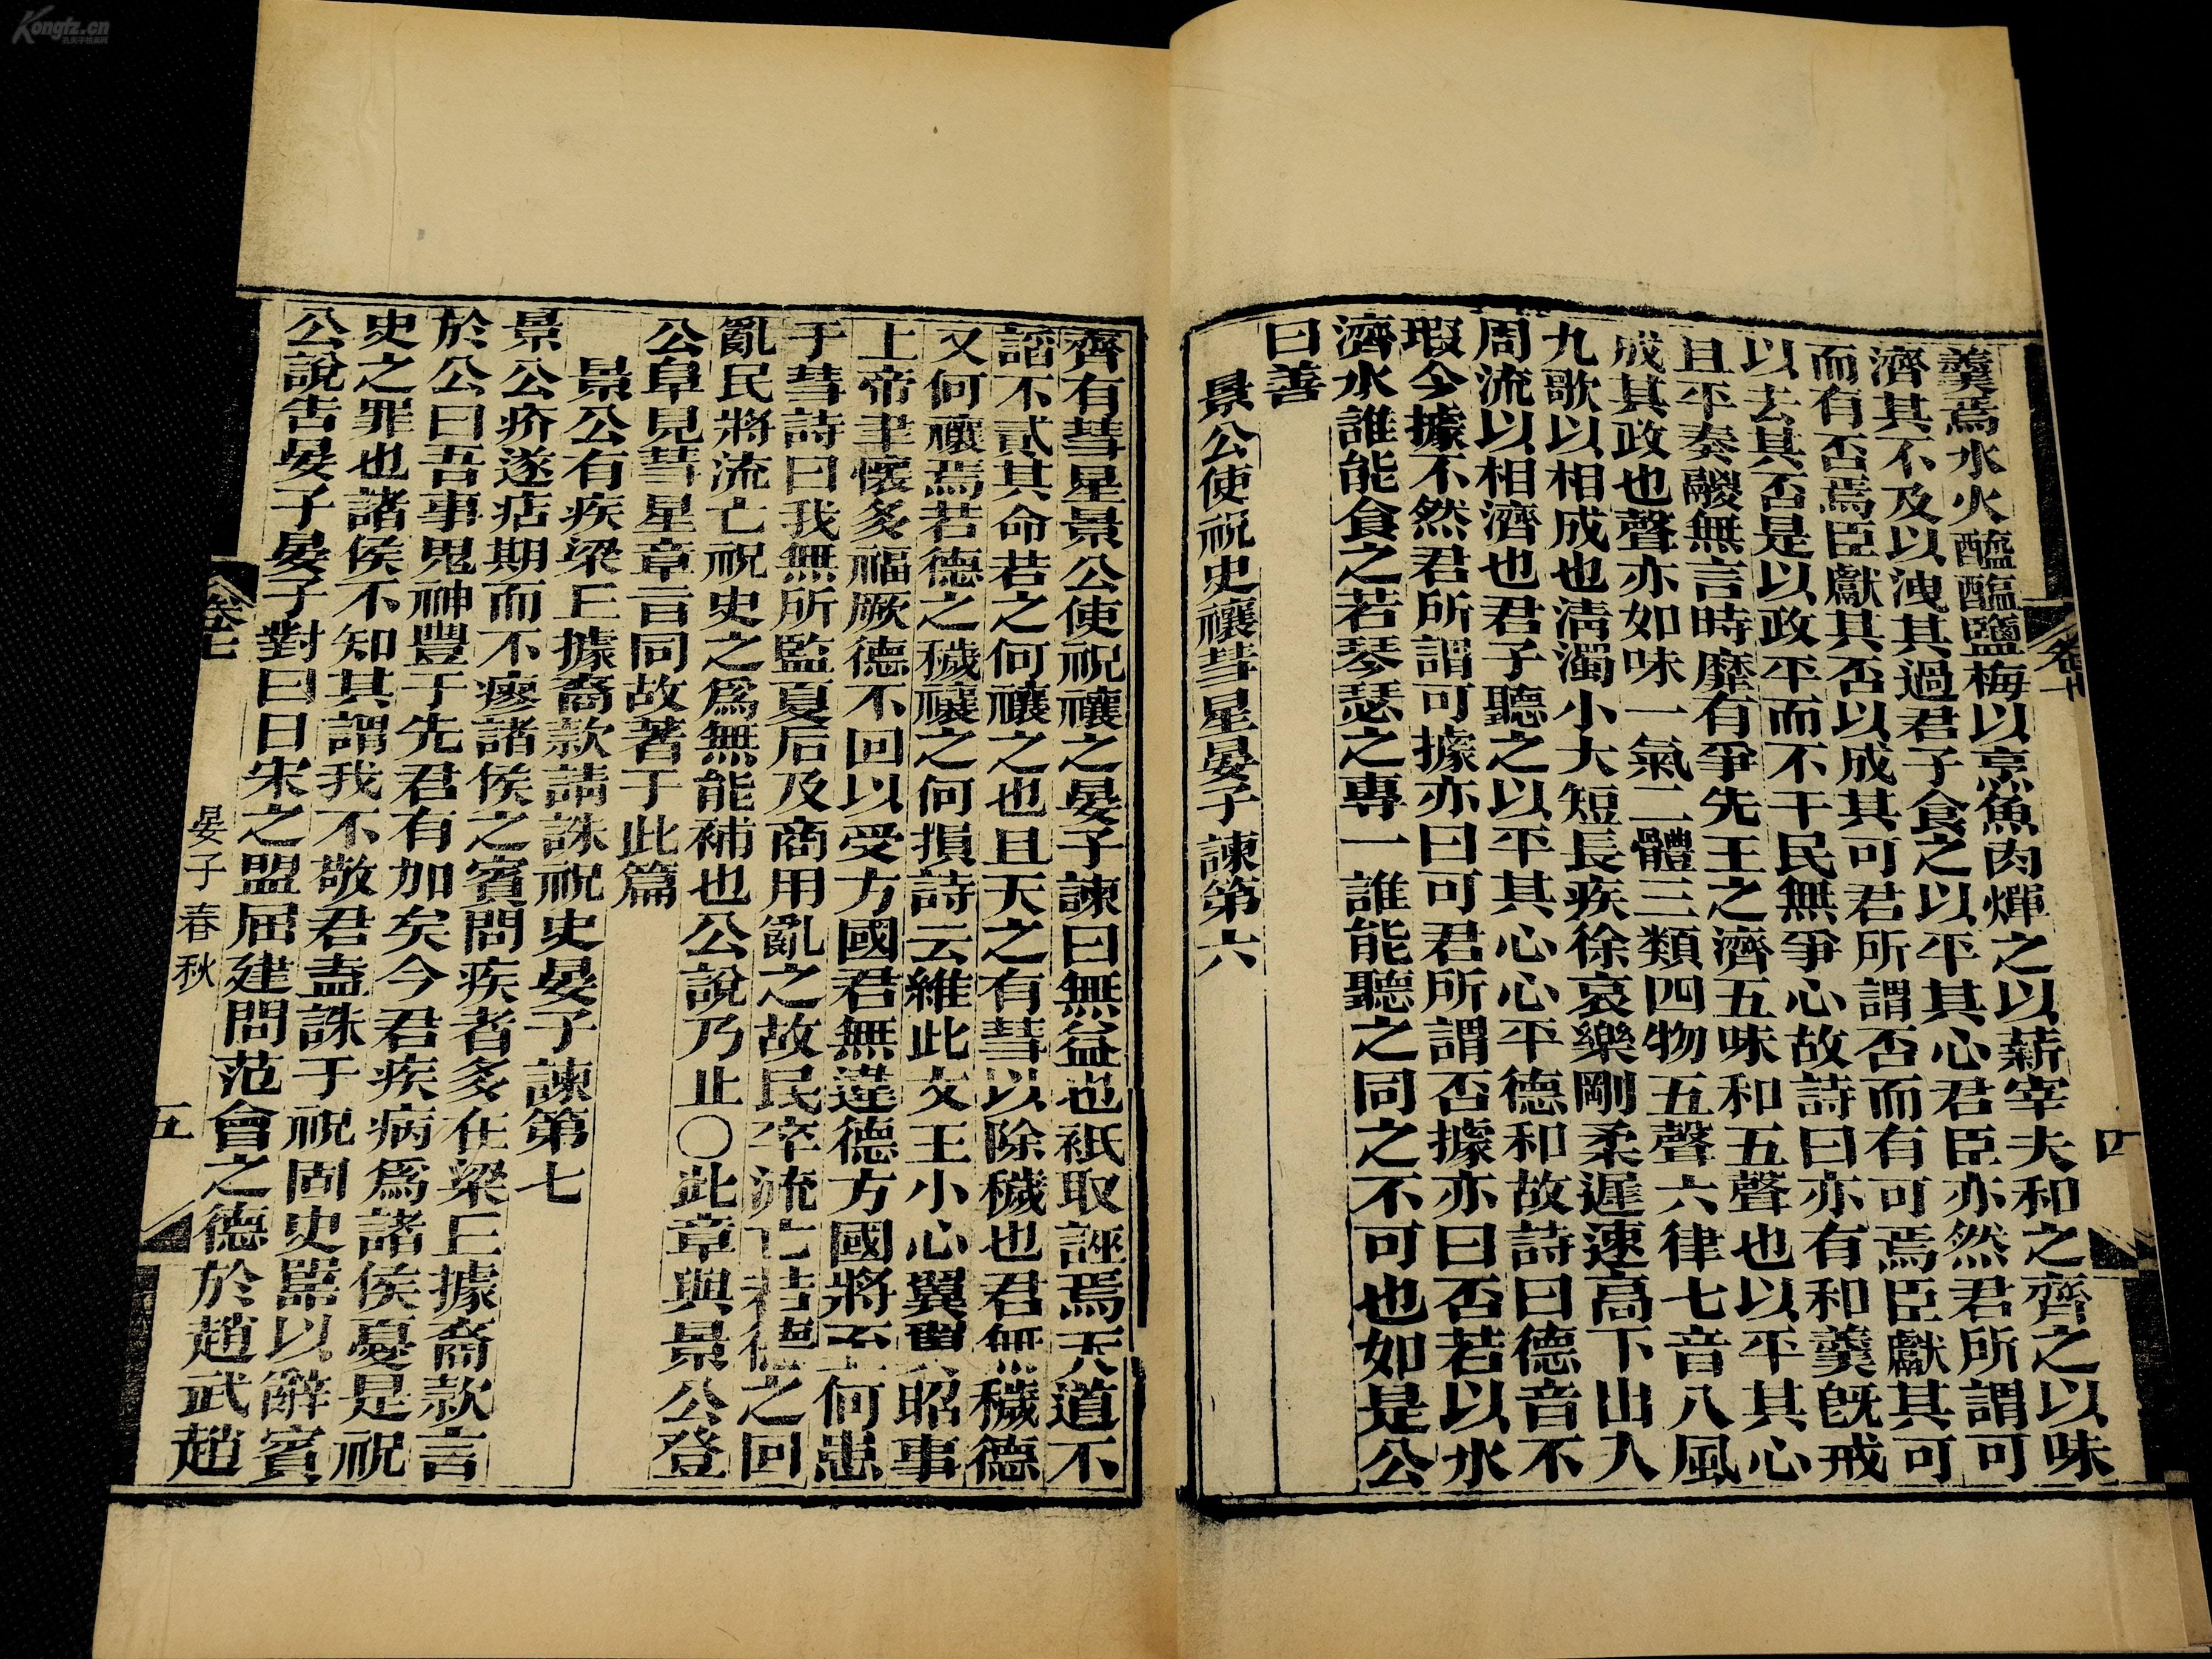 羹焉水火醯醢鹽梅以烹魚肉燀之以薪宰夫和之齊之以味
濟其不及以洩其過君子食之以平其心君臣亦然君所謂可
而有否焉臣獻其否以成其可君所謂否而有可焉臣獻其可
以去其否是以政平而不干民無爭心故詩曰亦有和羹旣戒
且平奏鬷無言時靡有爭先王之濟五味和五聲也以平其心
成其政也聲亦如味一氣二體三類四物五聲六律七音八風
九歌以相成也淸濁小大短長疾徐哀樂剛柔遲速高下出入
周流以相濟也君子聽之以平其心心平德和故詩曰德音不
瑕今據不然君所謂可據亦曰可君所謂否據亦曰否若以水
濟水誰能食之若琴瑟之專一誰能聽之同之不可也如是公
曰善
景公使祝史禳彗星晏子諫第六
四
齊有彗星景公使祝禳之晏子諫曰無益也祇取誣焉天道不
諂不貳其命若之何禳之也且天之有彗以除穢也君無穢德
又何禳焉若德之穢禳之何損詩云維此文王小心翼翼昭事
上帝聿懷多福厥德不回以受方國君無違德方國將至何患
于彗詩曰我無所監夏后及商用亂之故民卒流亡若德之回
亂民將流亡祝史之爲無能補也公說乃止○此章與景公登
公阜見彗星章言同故著于此篇
景公有疾梁丘據裔款請誅祝史晏子諫第七
景公疥遂痁期而不瘳諸侯之賓問疾者多在梁丘據裔款言
於公曰吾事鬼神豐于先君有加矣今君疾病爲諸侯憂是祝
史之罪也諸侯不知其謂我不敬君盍誅于祝固史嚚以辭賓
公說告晏子晏子對曰日宋之盟屈建問范會之德於趙武趙
卷七
晏子春秋
五
Kongfz.cn